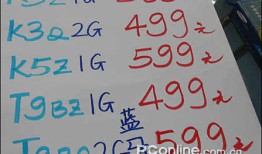 1G
K3Q 2G 499元
K5Z 1G 599元
T9BZ 1G 499元
蓝
2G 599元
PConline.com.cn